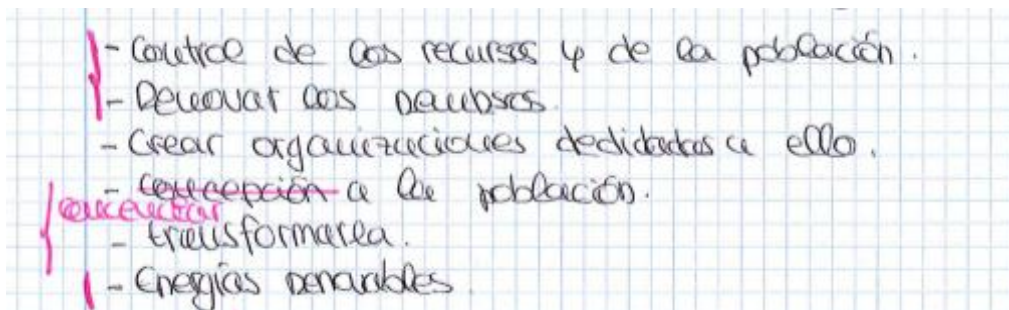 - Control de los recursos y de la población.
- Renovar los recursos.
- Crear organizaciones dedicadas a ello.
- concepción a la población.
concentrar
- transformarla.
- Energías renovables